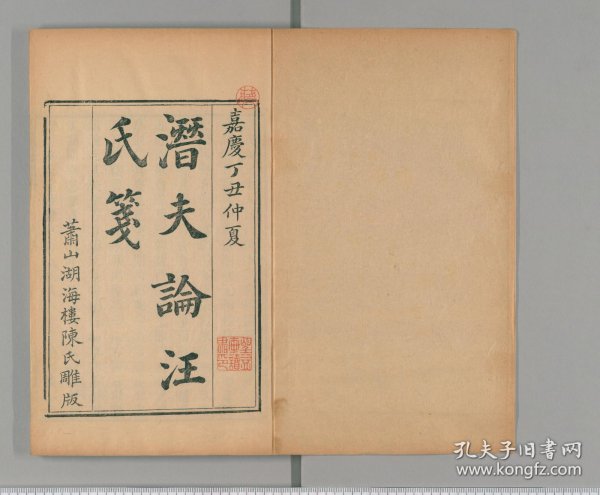 嘉慶丁丑仲夏
潛夫論汪
氏箋
蕭山湖海樓陳氏雕版
孔夫子旧书网
www.kongfz.com